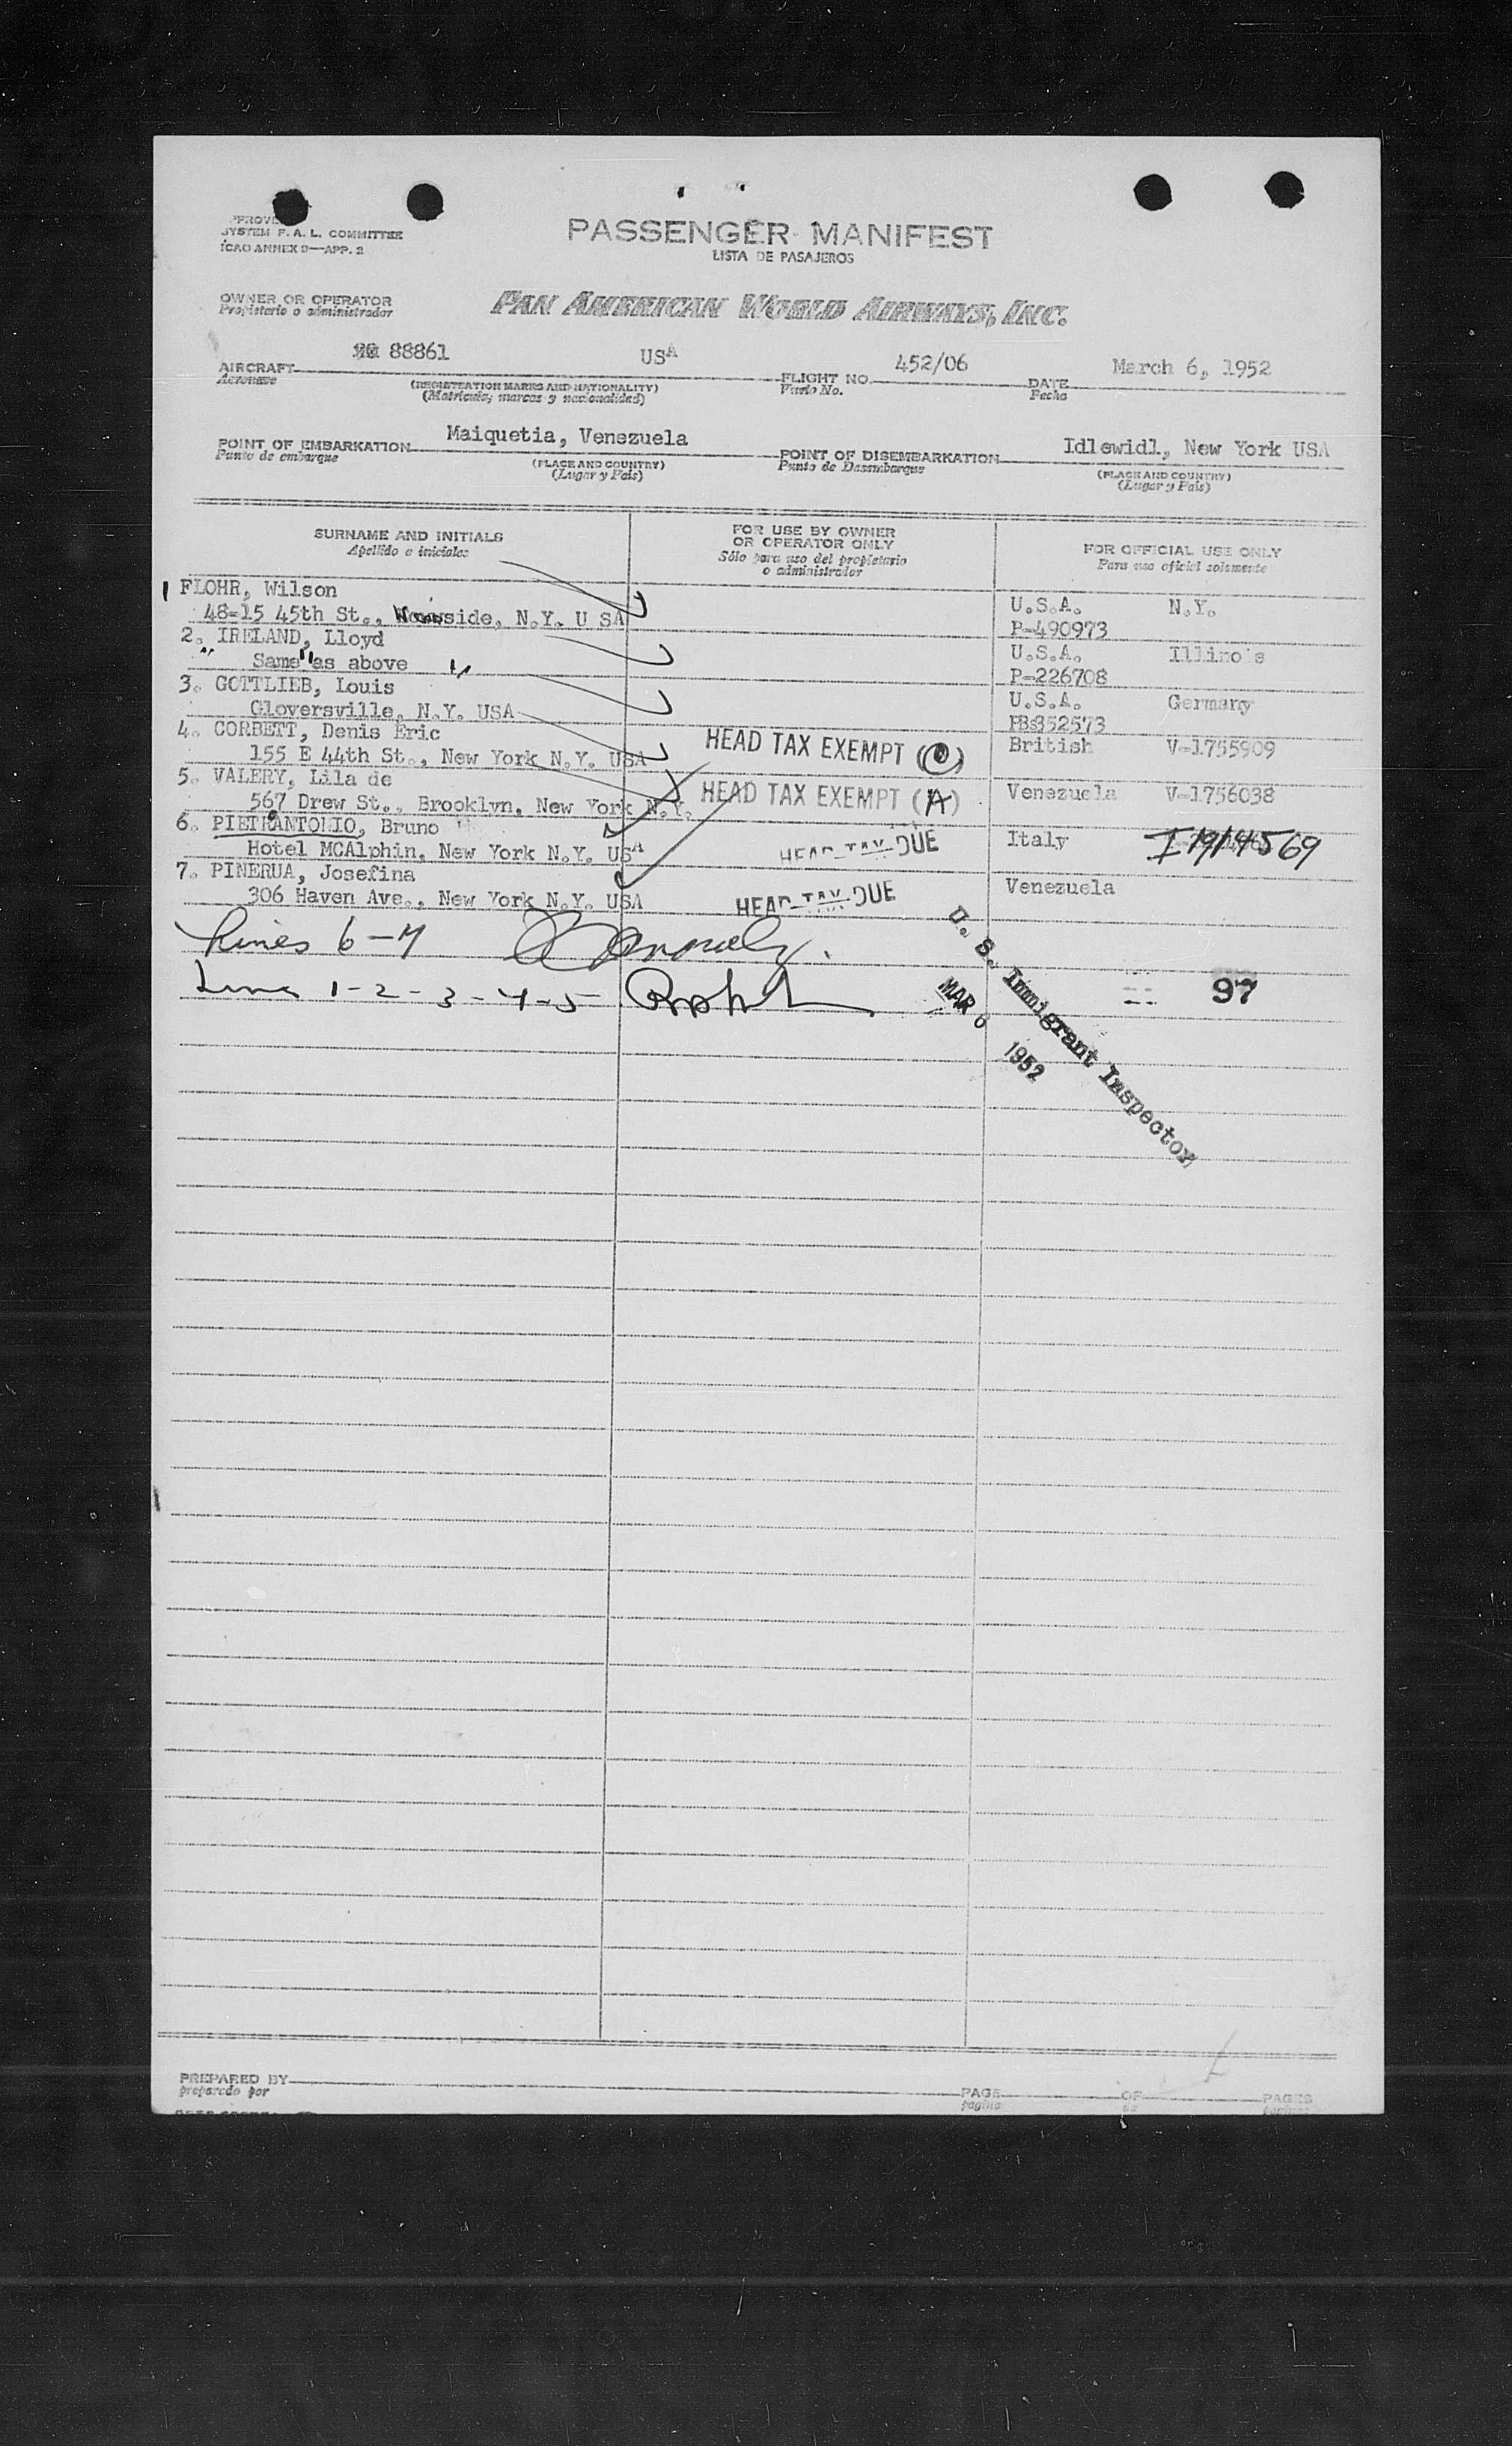 SYSTEM F. A. L. COMMITTEE
ICAO ANNEX 9—APP. 2
PASSENGER MANIFEST
LISTA DE PASAJEROS
OWNER OR OPERATOR
Propietario o administrador
PAN AMERICAN WORLD AIRWAYS, INC.
AIRCRAFT 88861 USA
Aeronave
(REGISTRATION MARKS AND NATIONALITY)
(Matricula, marcas y nacionalidad)
FLIGHT NO. 452/06
Vuelo No.
DATE March 6, 1952
Fecha
POINT OF EMBARKATION Maiquetia, Venezuela
Punto de embarque
(PLACE AND COUNTRY)
(Lugar y País)
POINT OF DISEMBARKATION Idlewidl, New York USA
Punto de Desembarque
(PLACE AND COUNTRY)
(Lugar y País)
SURNAME AND INITIALS
Apellido e iniciales
FOR USE BY OWNER
OR OPERATOR ONLY
Sólo para uso del propietario
o administrador
FOR OFFICIAL USE ONLY
Para uso oficial solamente
1 FLOHR, Wilson
48-15 45th St., N.Y. U SA
U.S.A. N.Y.
P-490973
2. IRELAND, Lloyd
" Same as above "
U.S.A. Illinois
P-226708
3. GOTTLIEB, Louis
Gloversville, N.Y. USA
U.S.A. Germany
352573
4. CORBETT, Denis Eric
155 E 44th St., New York N.Y. USA
HEAD TAX EXEMPT
British V-1755909
5. VALERY, Lila de
567 Drew St., Brooklyn, New York N.Y.
HEAD TAX EXEMPT (A)
Venezuela V-1756038
6. PIETRANTONIO, Bruno
Hotel MCAlphin, New York N.Y. USA
HEAD TAX DUE
Italy I 1914569
7. PINERUA, Josefina
306 Haven Ave., New York N.Y. USA
HEAD TAX DUE
Venezuela
Lines 6-7
Lines 1-2-3-4-5
U. S. Immigrant Inspector
MAR 6 1952
97
PREPARED BY
preparado por
PAGE OF PAGES
pagina de paginas